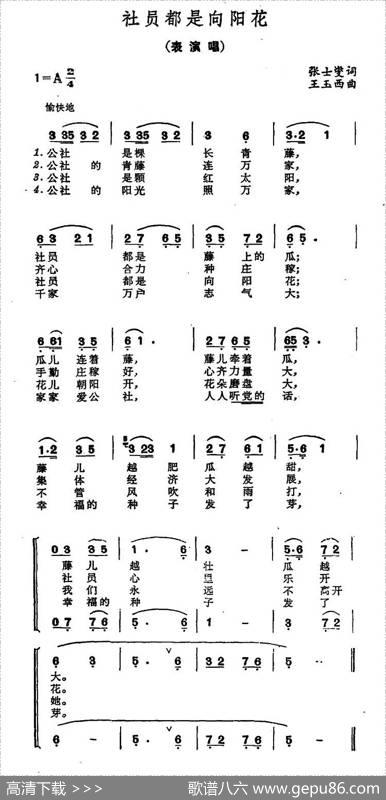 社员都是向阳花
(表演唱)
1=A 2/4
张士燮 词
王玉西 曲
愉快地
3 35 3 2 | 3 35 3 2 | 3 6 | 3·2 1
1. 公社 是棵 长 青 藤,
2. 公社 的 青藤 连 万 家,
3. 公社 是颗 红 太 阳,
4. 公社 的 阳光 照 万 家,
6 3 2 1 | 2 7 6 5 | 3 5 | 6 -
社员 都是 藤 上的 瓜;
齐心 合力 种 庄 稼;
社员 都是 向 阳 花;
千家 万户 志 气 大;
6 61 3 5 | 6 1· | 2 7 6 5 | 65 3·
瓜儿 连着 藤, 藤儿 牵着 瓜,
手勤 庄稼 好, 心齐 力量 大,
花儿 朝阳 开, 花朵 磨盘 大,
家家 爱公 社, 人人 听党的 话,
1·2 3 5 | 3 23 1 | 2 7 6 1 | 5·6 1
藤 儿 越 肥 瓜 越 甜,
集 体 经 济 大 发 展,
不 管 风 吹 和 雨 打,
幸 福的 种 子 发 了 芽,
0 3 3 5 | 1· 6 | 3 - | 5·6 7 2
藤 儿 越 壮 瓜 越
社 员 心 里 乐 开
我 们 永 远 不 离开
幸 福的 种 子 发 了
0 7 7 6 | 5· 6 | 1 - | 3 7 2
6 3 | 5· 6 | 7 2 7 6 | 5 -
大。
花。
她。
芽。
6 1 | 5· 6 | 3 2 7 6 | 5 -
高清下载 >>>
歌谱八六 www.gepu86.com